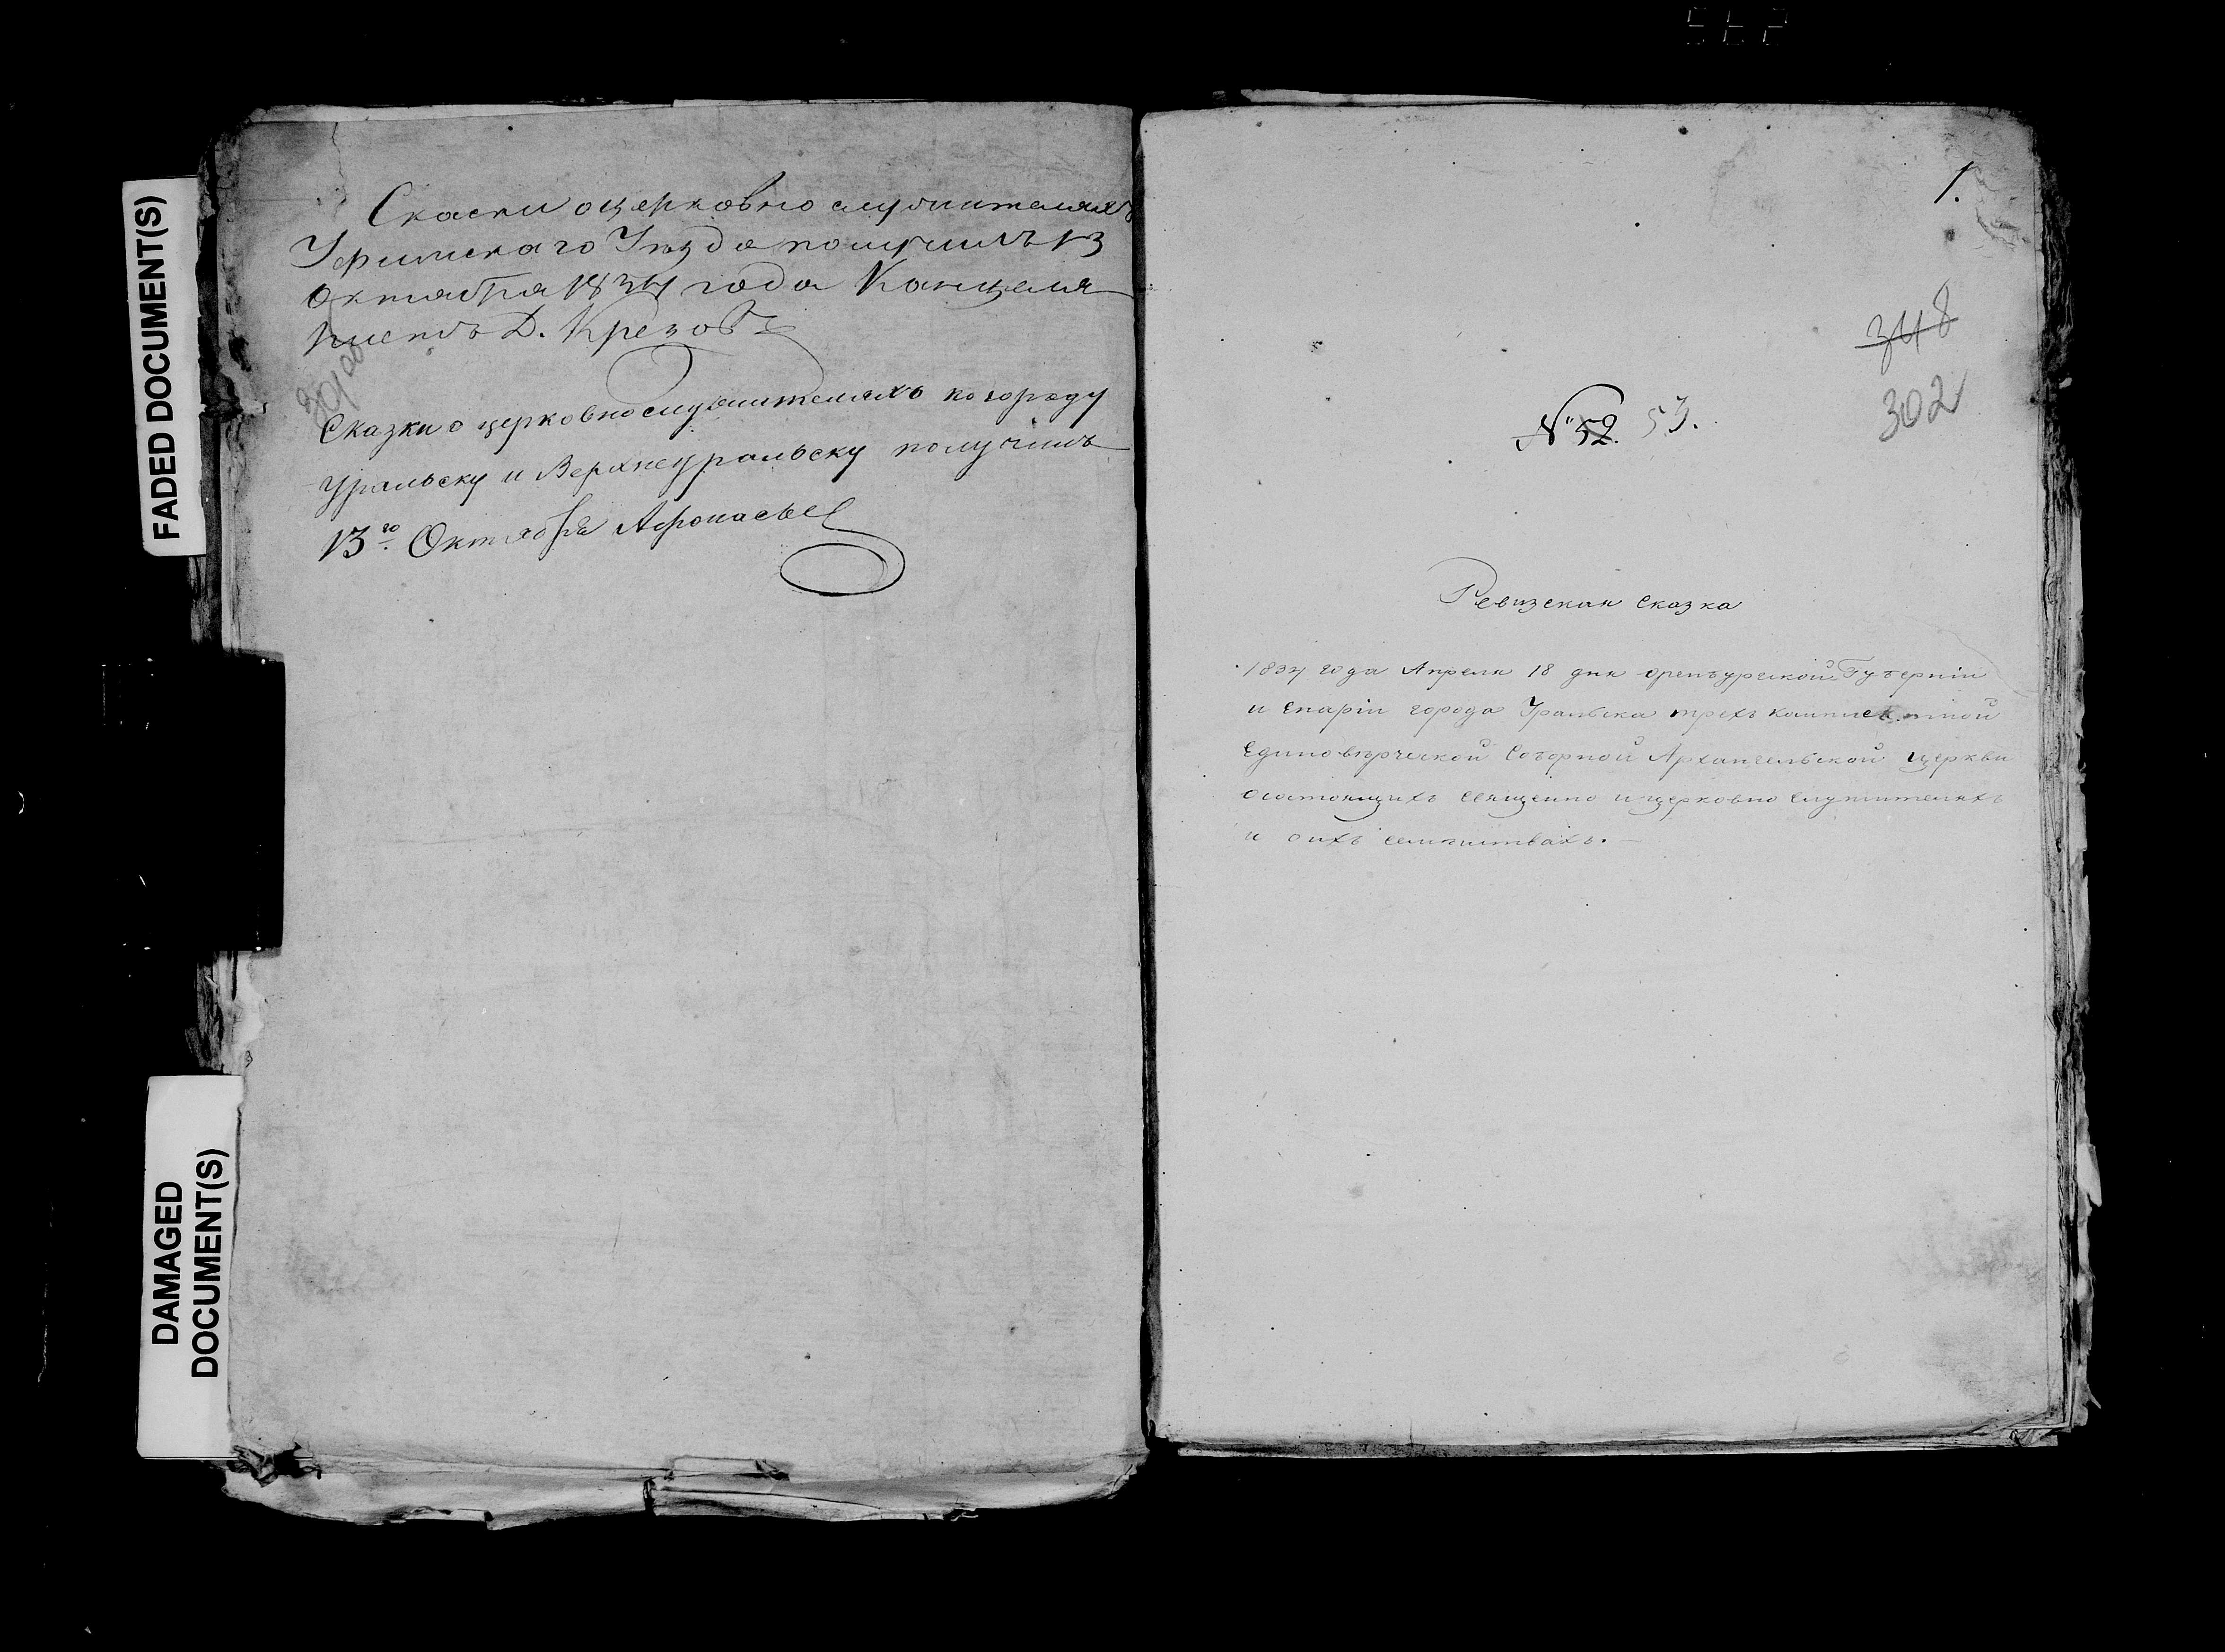 FADED DOCUMENT(S)
DAMAGED
DOCUMENT(S)
Скаски оцерковно служителяхъ
Уфимскаго Уѣзда получилъ 13
Октября 1834 года Канцеля
ристъ Д.
Сказки о церковнослужителяхъ по городу
Уральску и Верхнеуральску получилъ
13го Октября Афонасьев
1.
348
302
№ 52. 53.
Ревизская сказка
1834 года Апреля 18 дня Оренбургской Губерніи
и Епархіи города Уральска трехъ
Единоверческой Соборной Архангельской церкви
осостоящихъ священно ицерковно служителяхъ
и оихъ семействахъ.